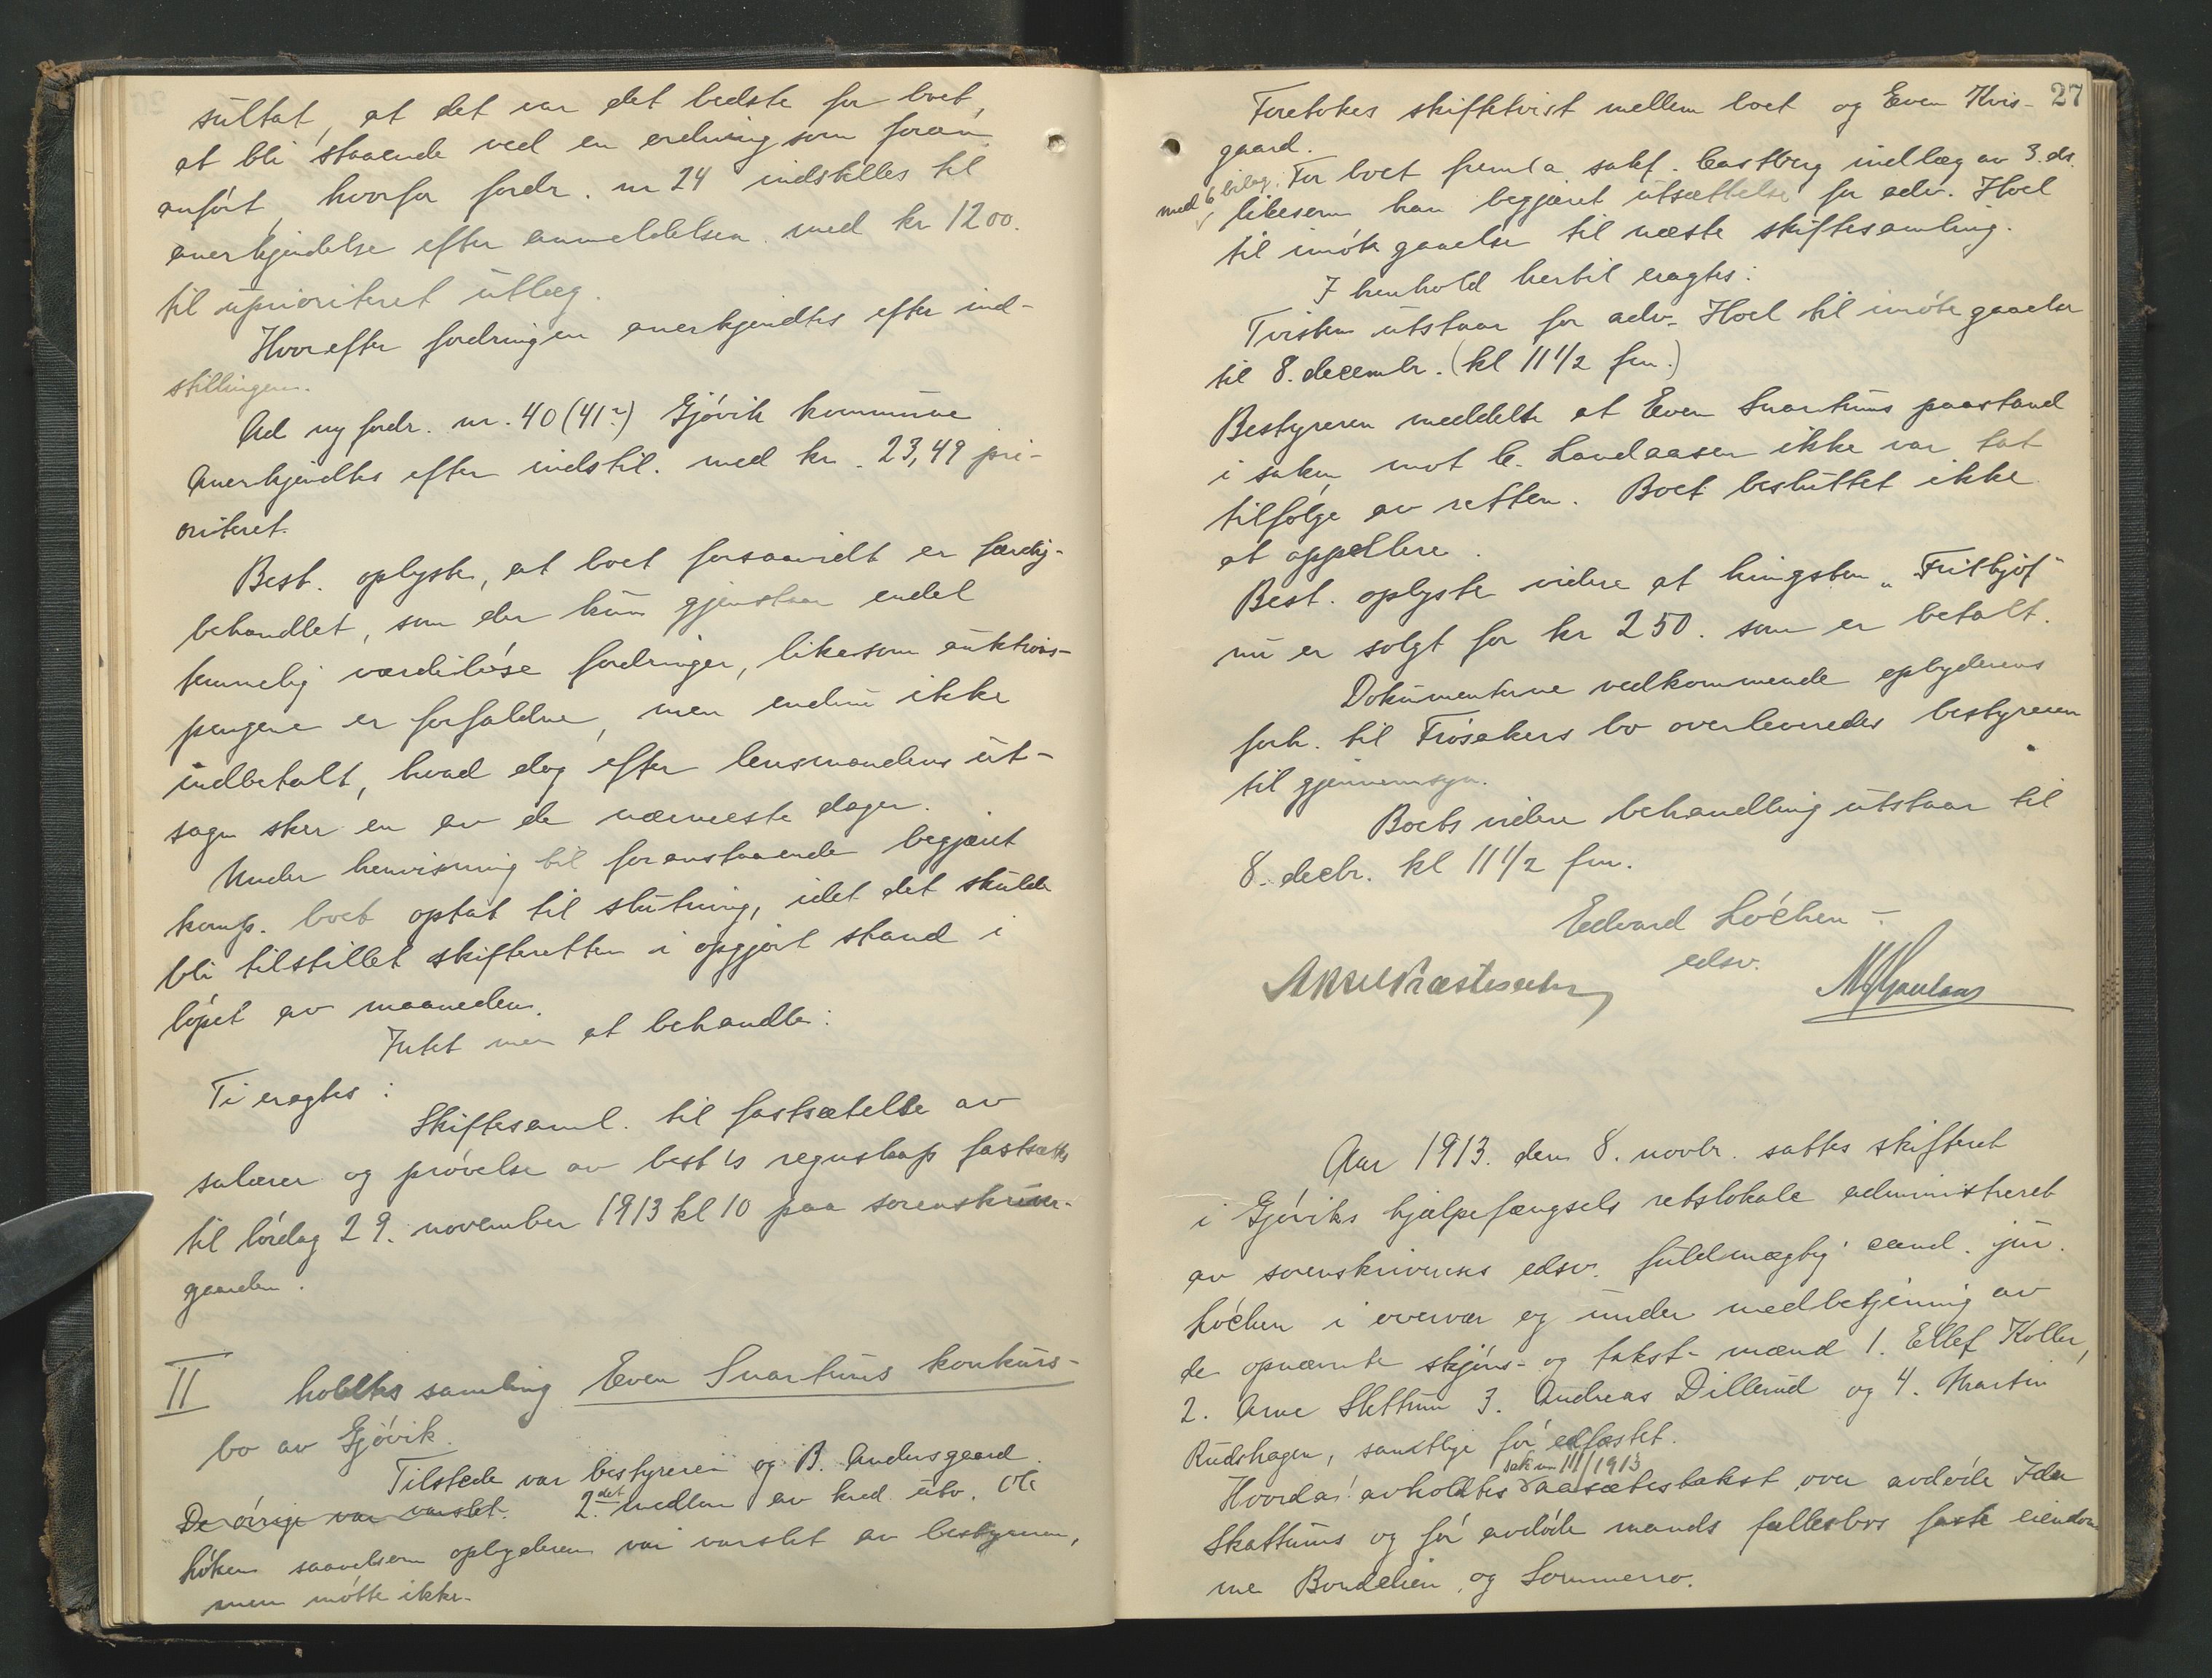 sultat, at det var det bedste for boet,
at bli staaende ved en ordning som foran
anført, hvorfor fordr. nr 24 indstilles til
anerkjendelse efter anmeldelsen med kr 1200.
til uprioriteret utlæg.
Hvorefter fordringen anerkjendtes efter ind-
stillingen.
Ad ny fordr. nr. 40 (41?) Gjøvik kommune
Anerkjendtes efter indstil. med kr. 23,49 pri-
oriteret.
Best. oplyste, at boet forsaavidt er færdig-
behandlet, som der kun gjenstaar endel
temmelig værdiløse fordringer, likesom auktions-
pengene er forfaldne, men endnu ikke
indbetalt, hvad dog efter lensmandens ut-
sagn sker en av de nærmeste dager.
Under henvisning til foranstaaende begjært
komp. boet optat til slutning, idet det skulde
bli tilstillet skifteretten i opgjort stand i
løpet av maaneden.
Intet mer at behandle:
Ti eragtes:
Skiftesaml. til fastsættelse av
salærer og prøvelse av best's regnskap fastsættes
til lørdag 29. november 1913 kl 10 paa sorenskriver-
gaarden.
II holdtes samling Even Snartums konkurs-
bo av Gjøvik.
Tilstede var bestyreren og B. Andersgaard.
De øvrige var varslet. 2det medlem av kred. utv. Ole
Løken saavelsom opbyderen var varslet av bestyreren,
men møtte ikke.
27
Foretokes skiftetvist mellem boet og Even Kvis-
gaard.
med 6 bilag. For boet fremla sakf. Castberg indlæg av 3. ds.
likesom han begjæret utsættelse for adv. Hoel
til imøtegaaelse til næste skiftesamling.
I henhold hertil eragtes:
Tvisten utstaar for adv. Hoel til imøtegaaelse
til 8. decembr. (kl 11 1/2 fm.)
Bestyreren meddelte at Even Snartums paastand
i saken mot C. Landaasen ikke var tat
tilfølge av retten. Boet besluttet ikke
at appellere.
Best. oplyste videre at hingsten „Frithjof"
nu er solgt for kr 250. som er betalt.
Dokumenterne vedkommende opbyderens
forh. til Frøsakers bo overleveredes bestyreren
til gjennemsyn.
Boets videre behandling utstaar til
8. decbr. kl 11 1/2 fm.
Edvard Løchen
edsv.
Aar 1913. den 8. novbr. sattes skifteret
i Gjøviks hjælpefængsels retslokale administreret
av sorenskriverens edsv. fuldmægtig cand. jur.
Løchen i overvær og under medbetjening av
de opnævnte skjøns- og takst-mænd 1. Ellef Koller,
2. Arne Slettum 3. Andreas Dillerud og 4. Martin
Rudshagen, samtlige før edfæstet.
sak nr III/1913
Hvorda: avholdtes aasætestakst over avdøde Ida
Skattums og før avdøde mands fællesbos faste eiendom
me Bondelien og Sommerro.